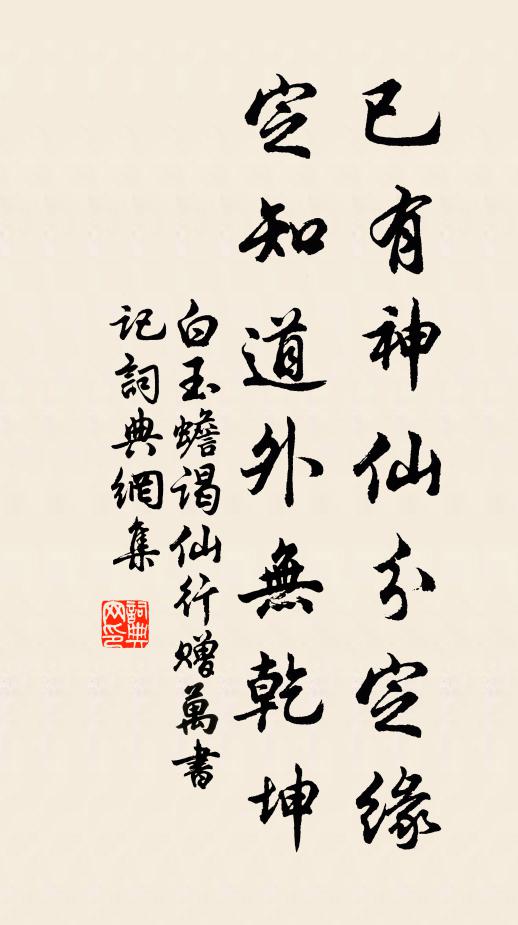 已有神仙分定緣
定知道外無乾坤
白玉蟾謁仙行贈萬書
記詞典網集
詞典網印